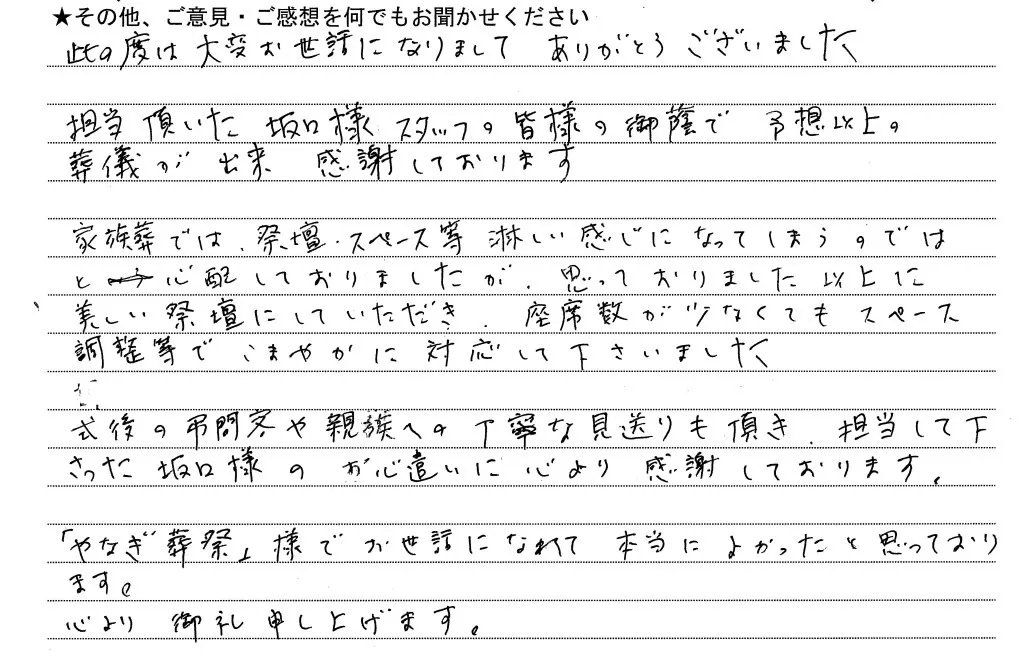 ★その他、ご意見・ご感想を何でもお聞かせください
此の度は大変お世話になりまして ありがとうございました
担当頂いた 坂口様 スタッフの皆様の御蔭で 予想以上の
葬儀が 出来 感謝しております
家族葬では、祭壇・スペース等 淋しい感じになってしまうのでは
と 心配しておりましたが、思っておりました以上に
美しい祭壇にしていただき、座席数が少なくてもスペース
調整等で こまやかに 対応して下さいました
式後の弔問客や親族への丁寧な見送りも頂き、担当して下
さった坂口様の お心遣いに心より感謝しております。
「やなぎ葬祭」様でお世話になれて 本当によかったと思っており
ます。
心より 御礼申し上げます。